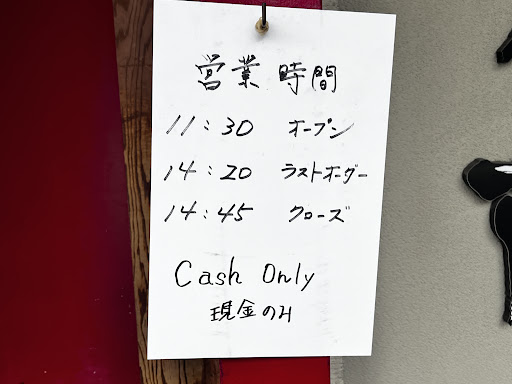 営業時間
11:30 オープン
14:20 ラストオーダー
14:45 クローズ
Cash Only
現金のみ